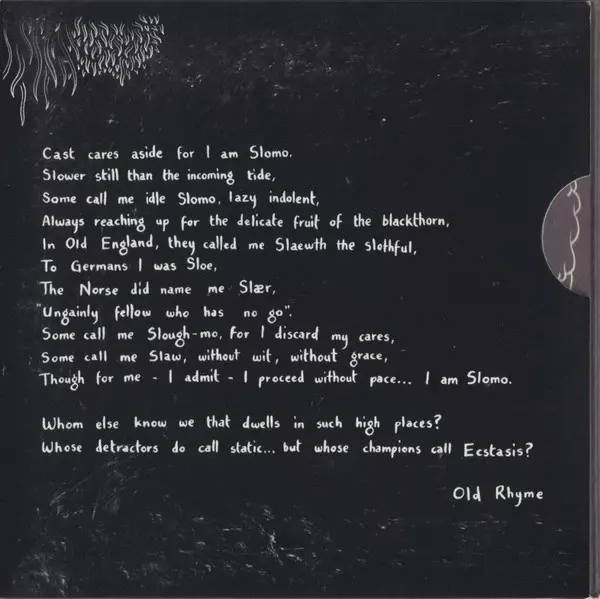 Cast cares aside for I am Slomo.
Slower still than the incoming tide,
Some call me idle Slomo, lazy indolent,
Always reaching up for the delicate fruit of the blackthorn,
In Old England, they called me Slaewth the slothful,
To Germans I was Sloe,
The Norse did name me Slær,
"Ungainly fellow who has no go".
Some call me Slough-mo, for I discard my cares,
Some call me Slaw, without wit, without grace,
Though for me - I admit - I proceed without pace... I am Slomo.
Whom else know we that dwells in such high places?
Whose detractors do call static... but whose champions call Ecstasis?
Old Rhyme